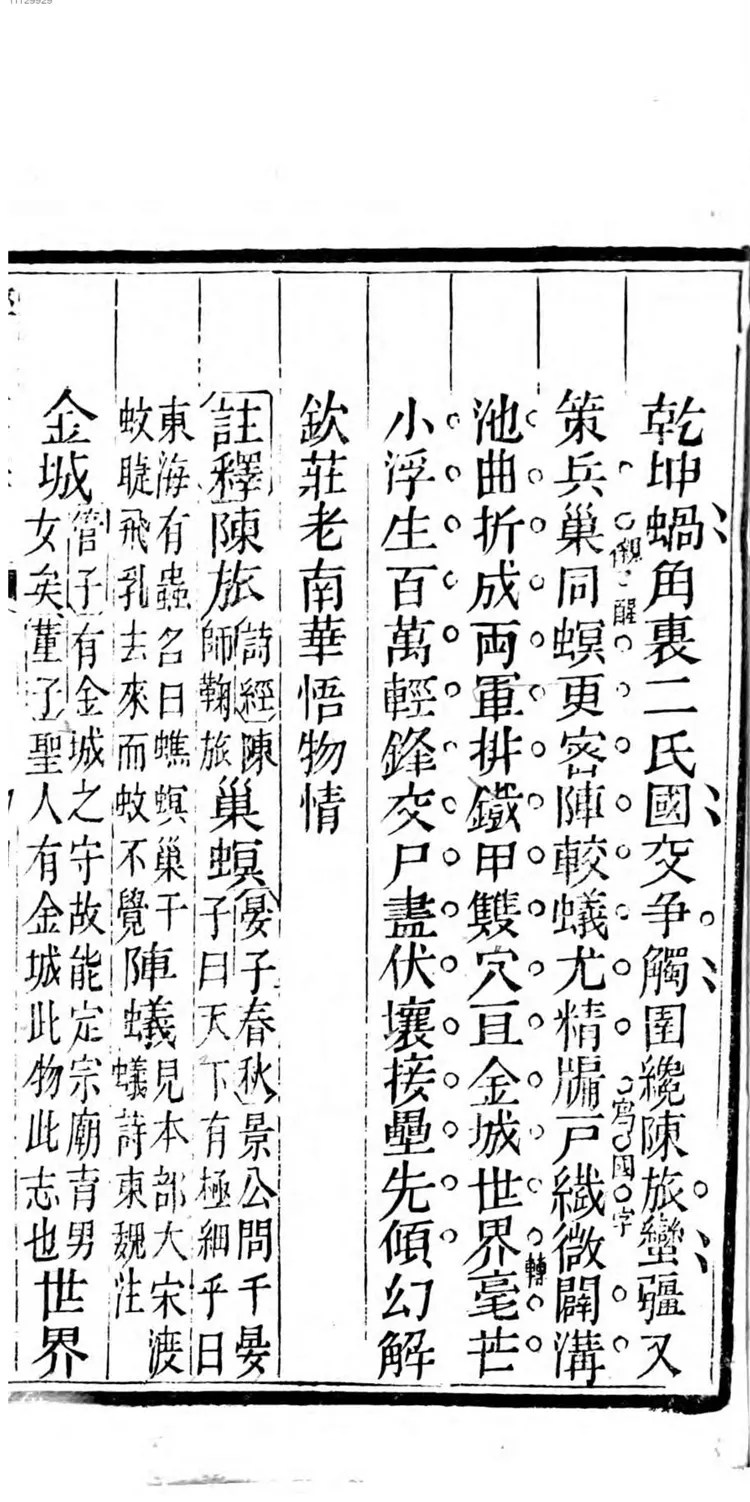 11129929
乾坤蝸角裏二氏國交争觸圉纔陳旅蠻疆又
策兵巢同螟更密陣較蟻尤精牖戸纎微闢溝
覷醒
寫國字
池曲折成兩軍排鐵甲雙穴亘金城世界毫芒
轉
小浮生百萬輕鋒交尸盡伏壤接壘先傾幻解
欽莊老南華悟物情
註釋陳旅詩經陳師鞠旅巢螟晏子春秋景公問于晏子曰天下有極細乎曰
東海有蟲名曰蟭螟巢于蚊睫飛乳去來而蚊不覺陣蟻見本部大宋渡蟻詩東魏注
金城管子有金城之守故能定宗廟育男女矣董子聖人有金城此物此志也世界